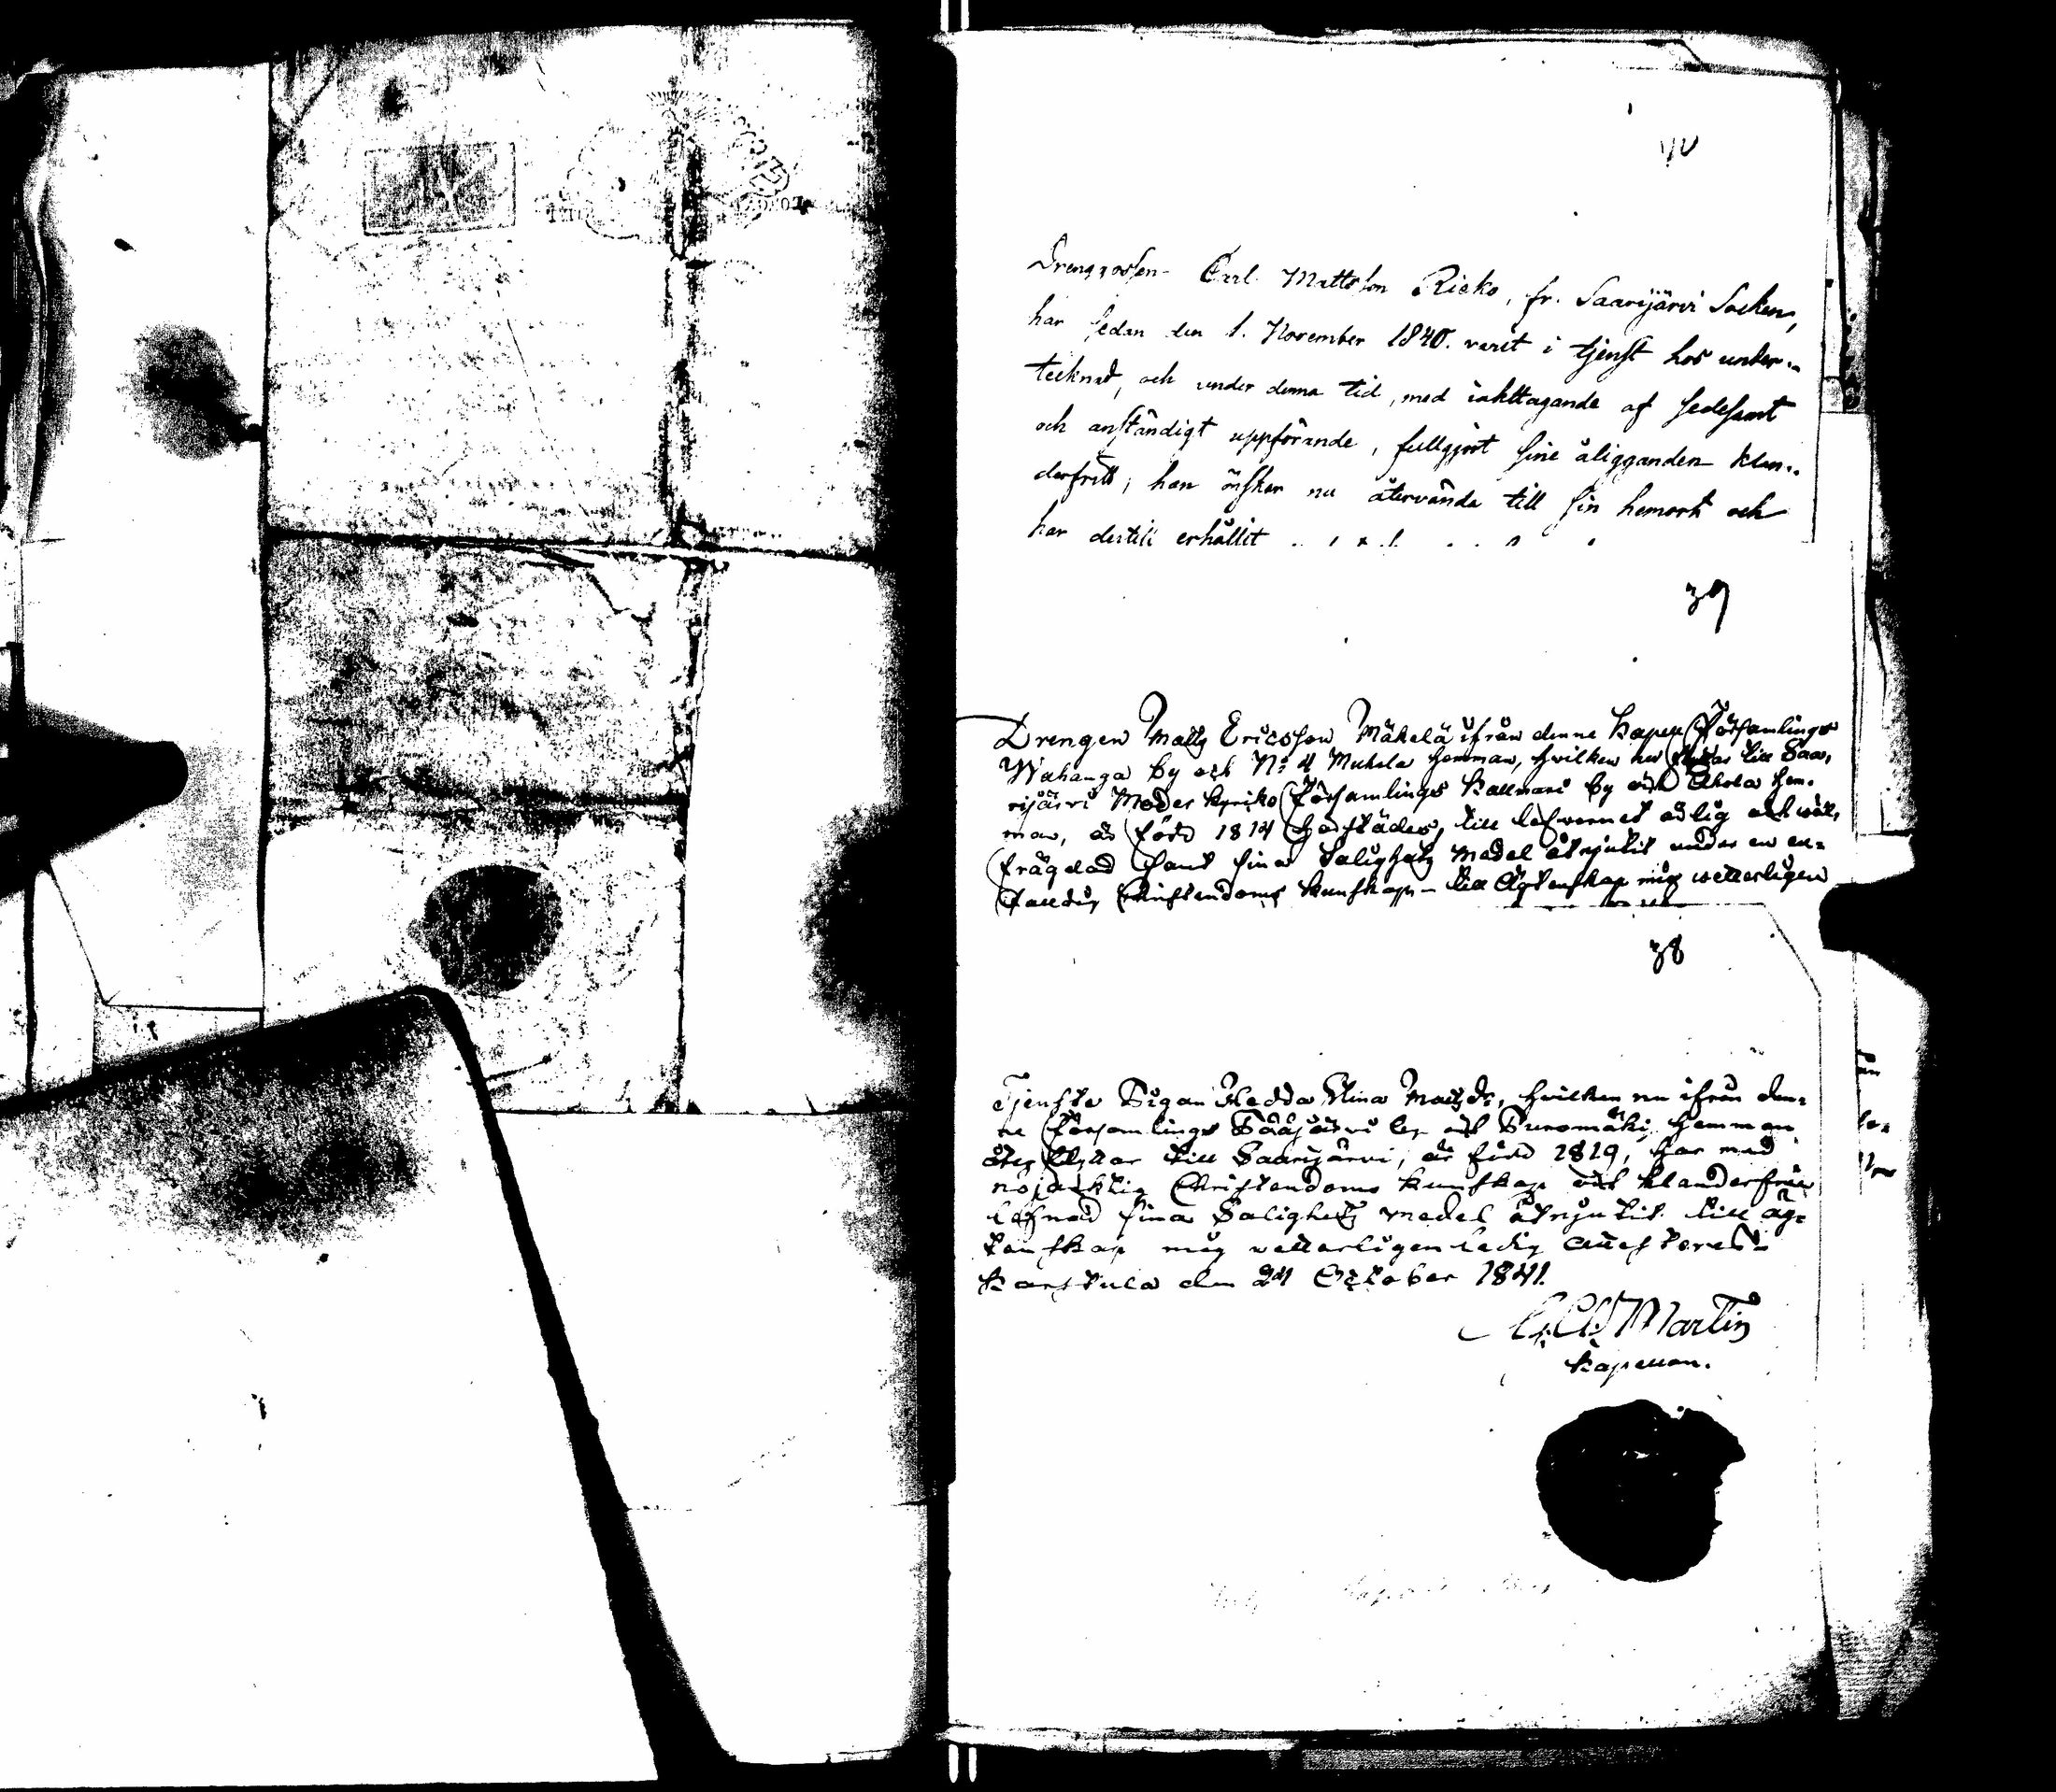 40
Drenggossen Carl Mattsson Rieko, fr. Saarijärvi Socken,
har sedan den 1. November 1840. varit i tjenst hos under-
tecknad, och under denna tid, med iakttagande af sedesamt
och anständigt uppförande, fullgjort sine åligganden klan-
derfritt; han önskar nu återvända till sin hemort och
har dertill erhållit
39
Drengen Matts Ericsson Mäkelä ifrån denne Capell Församlings
Wahanga by och No 4 Mukola hemman, hwilken nu flyttar till Saa-
rijärvi Moder Kyrko Församlings Kallmari by och Ahola hem-
man, är född 1814 härstädes, till lefwernet ärlig och wäl-
frägdad samt sina Salighets medel åtnjutit under en en-
faldig Christendoms kunskap – till Ägtenskap mig wetterligen
38
Tjenste Pigan Hedda Stina Matsdr, hwilken nu ifrån den-
ne Församlings Pääjärvi by och Suromäki hemman
åter flyttar till Saarijärvi, är född 1819, har med
nöjaktig Christendoms kunskap och klanderfri
lefnad sina Salighets medel åtnjutit. till äg-
tenskap mig vetterligen ledig Attesteras
Karstula den 24 October 1841.
Martin
Kapellan.